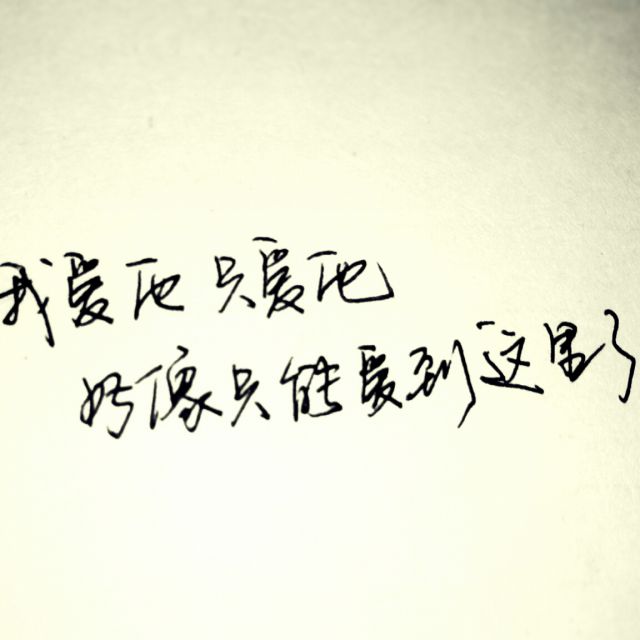 我爱他 只爱他
好像只能爱到这里了